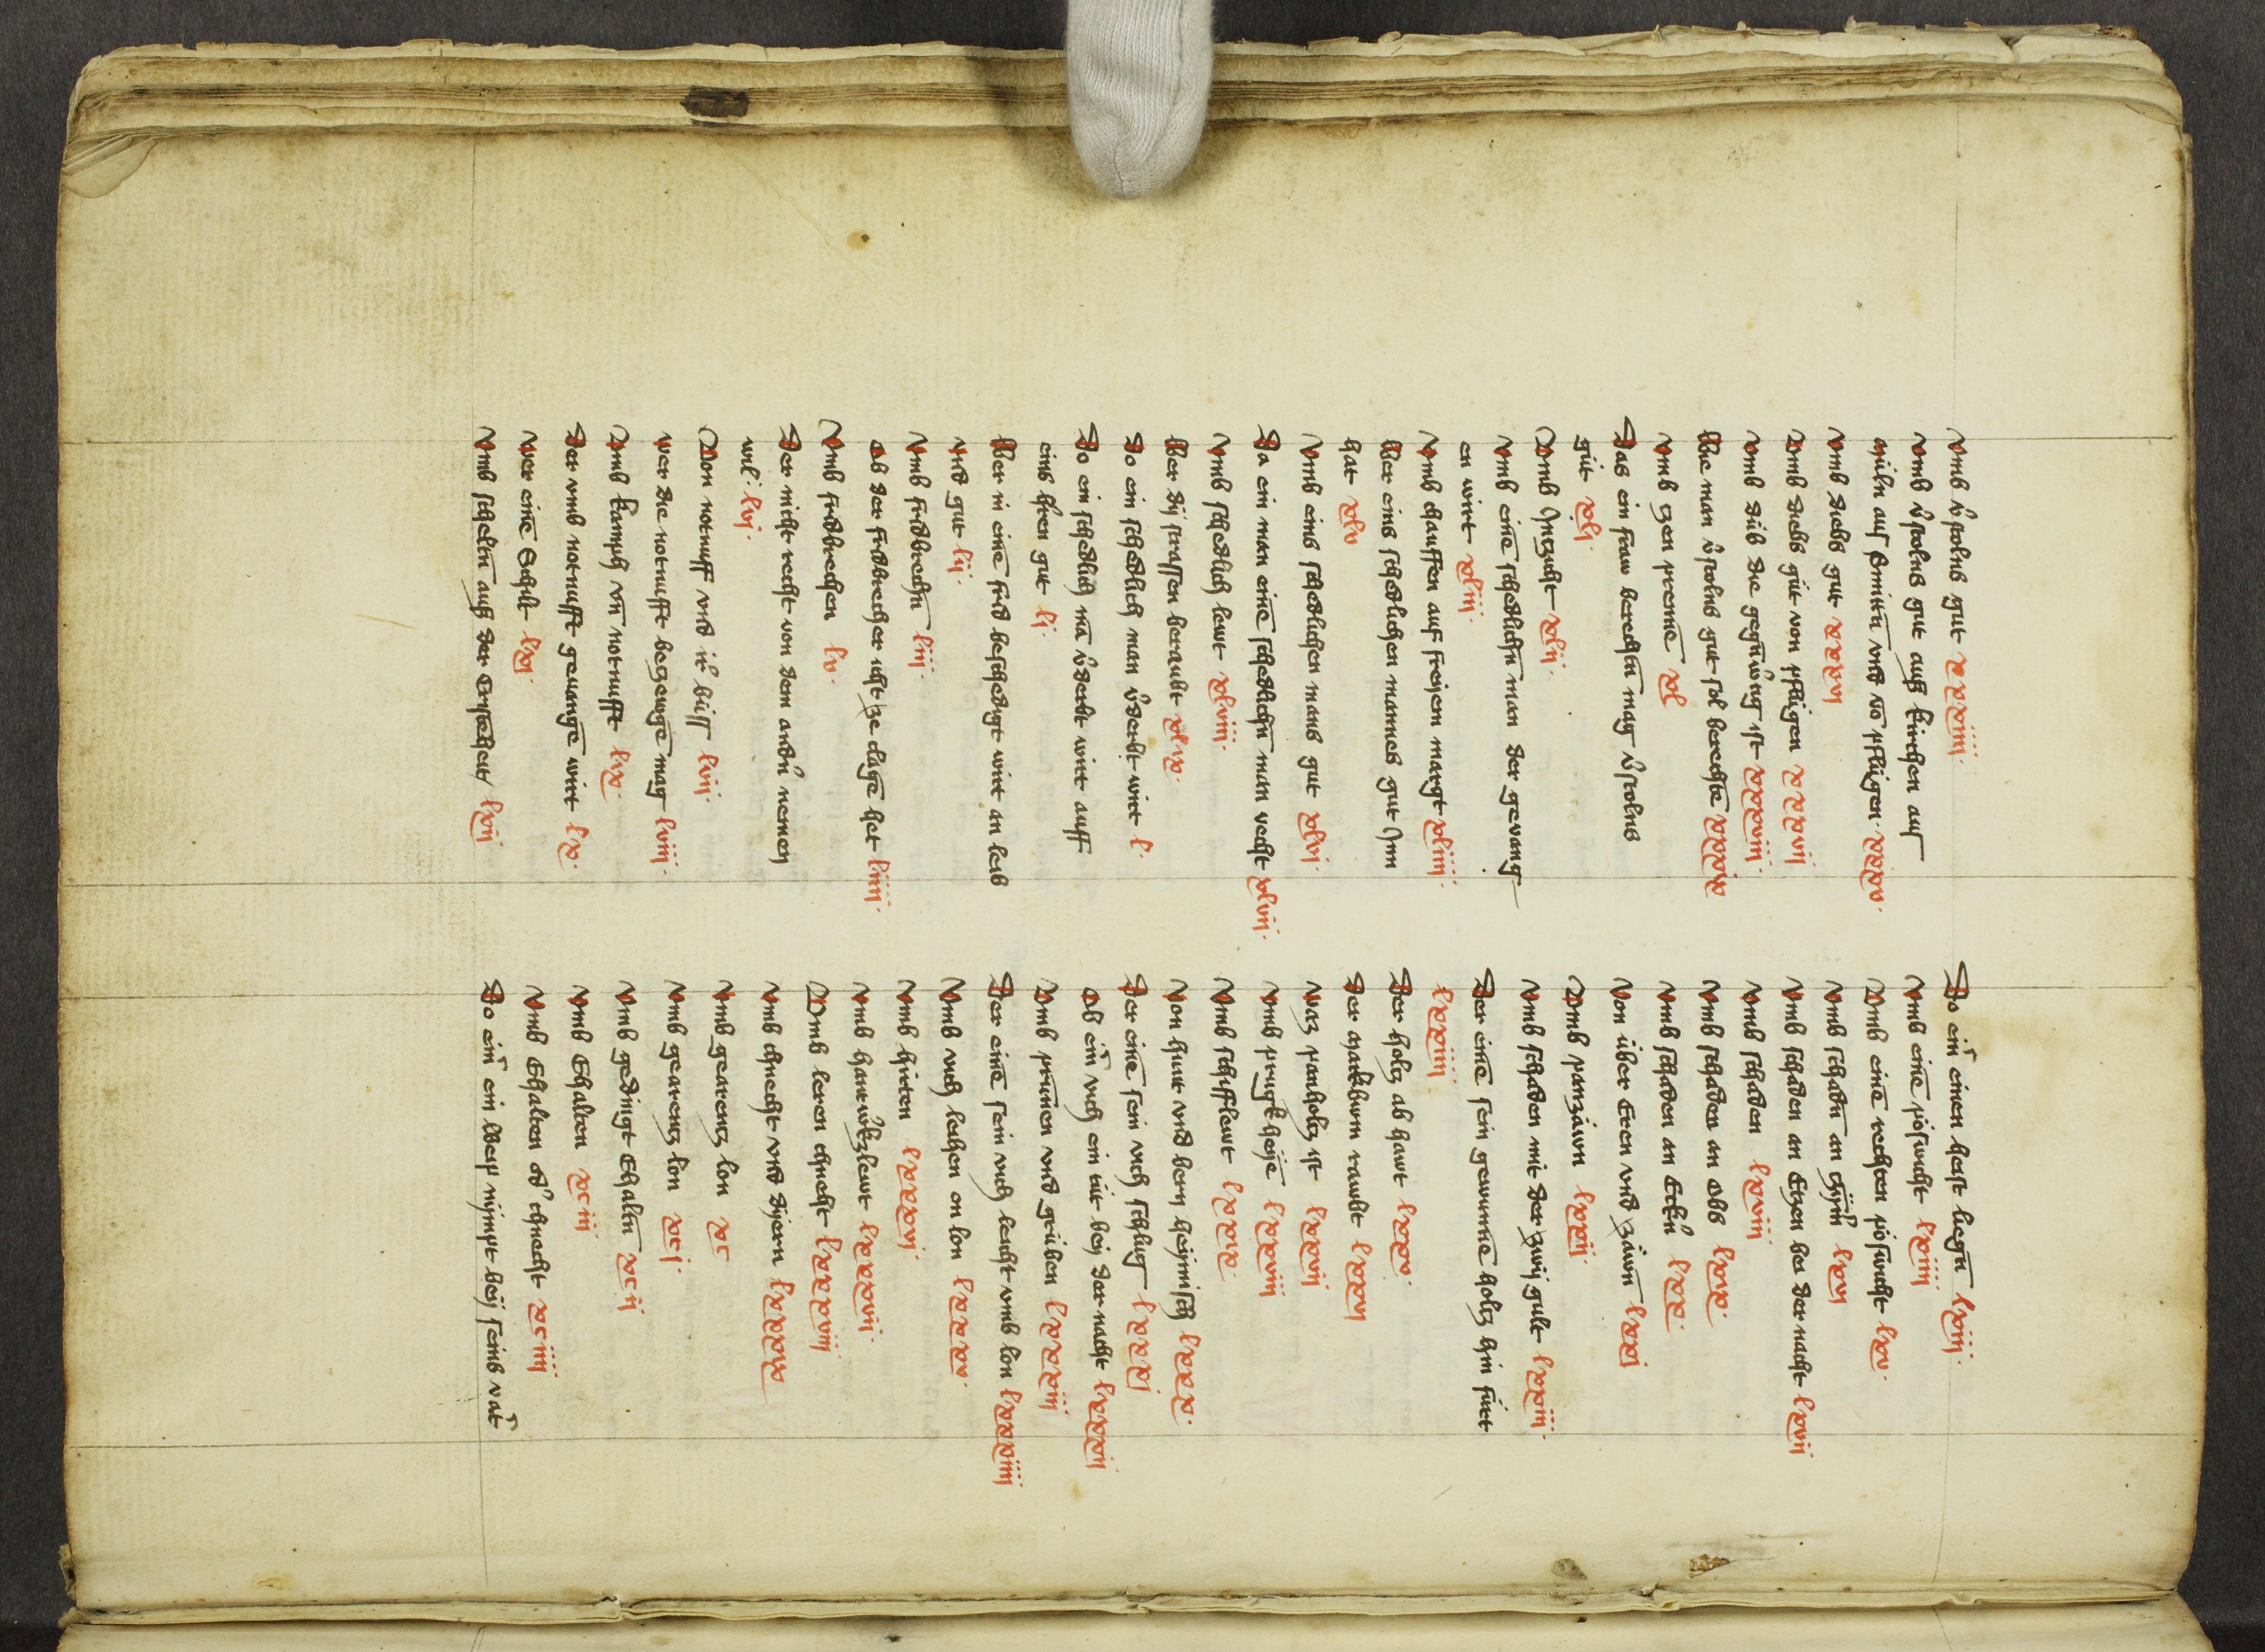 Vmb v̓stolns gut xxxiiij.
Vmb v̓stolns gut auß kirchen auß
mūln auß smittn̄ vnd vō pflügen. xxxv.
Vmb diebs gut xxxvj
Vmb diebs güt von pflügen xxxvij
Vmb düb die gegn̄ v̓tig ist xxxviij.
Wie man v̓stolns gut sol berechtē xxxix
Vmb zen premē xl
Das ein fraw berechtn̄ mag v̓stolns
güt xlj.
Vmb Inzicht xlij.
Vmb einē schedlichn̄ man der gevang
en wirt xliij.
Vmb chauffen auf freyem margt xliiij.
Wer eins schedlichen mannes gut Inn
hat xlv
Vmb eins schedlichen mans gut xlvj.
Da ein man einē schedlichn̄ man vecht xlvij.
Vmb schedlich lewt xlviij.
Wer dij strassen beraubt xlix.
Do ein schedlich man v̓derbt wirt l.
Do ein schedlich mā v̓derbt wirt auff
eins hren gut lj.
Wer in einē frid beschedigt wirt an leib
vnd gut lij.
Vmb fridbrechn̄ liij.
Ob der fridbrecher icht ze clagē het liiij.
Vmb fridbrechen lv.
Der nicht recht von dem andn̓ nemen
wil. lvj.
Von notnuff vnd ir̓ büss lvij.
Wer die notnufft bezeugē mag lviij.
Vmb kamph vn̄ notnufft lix.
Der vmb notnufft gevangē wirt lx.
Wer einē Schilt lxj.
Vmb scheltn̄ auß der lxij
Do ein̓ einen heist liegn̄ lxiij.
Vmb einē pöswicht lxiiij
Vmb einē rechten pöswicht lxv.
Vmb schadn̄ an lxvj
Vmb schaden an Etzen bei der nacht lxvij
Vmb schaden lxviij
Vmb schaden an obs lxix.
Vmb schaden an Eckn̓ lxx.
Von über Eren vnd zäwn̄ lxxj
Vmb panzäwn lxxij
Vmb schaden mit der zwij gult lxxiij.
Der einē sein gewunnē holtz hin fürt
lxxiiij.
Der holtz ab hawt lxxv.
Der markbawm rawbt lxxvj
Waz panholtz ist lxxvij
Vmb prugkheyē lxxviij
Vmb schifflewt lxxix.
Von hunt vnd bern heymisch lxxx.
Der einē sein vich schlug lxxxj
Ob ein̓ vich ein tüt bey der nacht lxxxij
Vmb prunnen vnd grüben lxxxiij
Der einē sein vich leicht vmb lon lxxxiiij
Vmb vich leihen on lon lxxxv.
Vmb hirten lxxxvj
Vmb hantw̓kzlewt lxxxvij.
Vmb leren chnecht lxxxviij
Vmb chnecht vnd dijern lxxxix
Vmb gearentz lon xc
Vmb gearentz lon xcj.
Vmb gedingt Ehaltn̄ xcij
Vmb Ehalten xciij
Vmb Ehalten od̓ chnecht xciiij
Do ein̓ ein Weip nympt bey seins vat̓